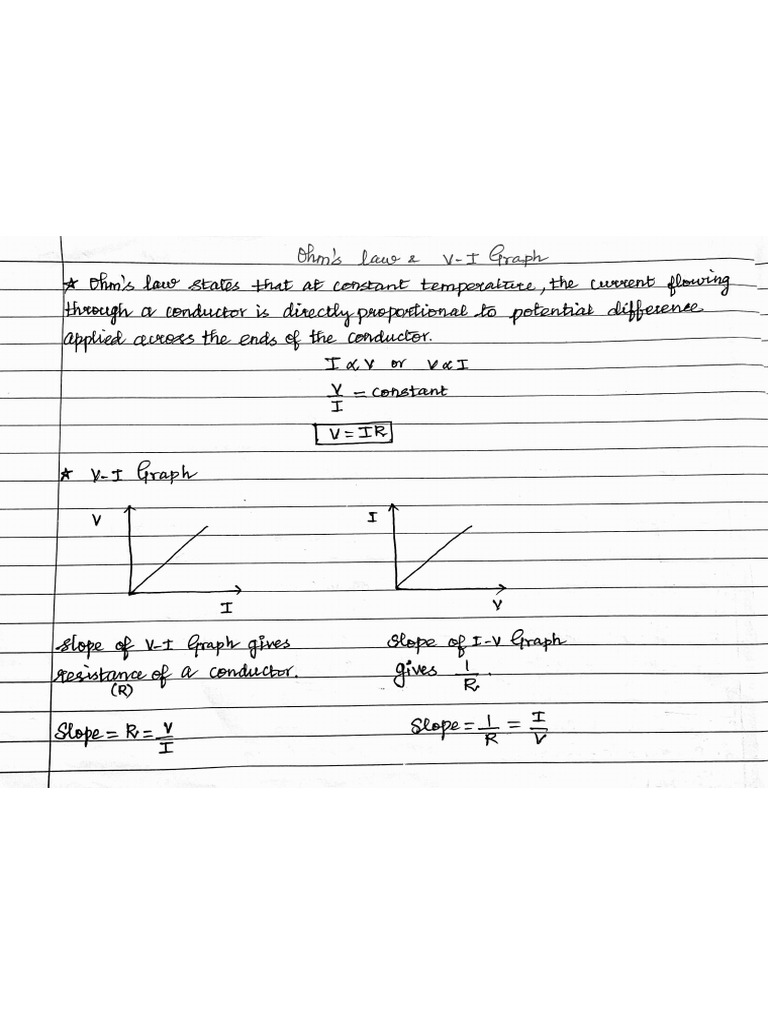 Ohm's law & V-I Graph
★ Ohm's law states that at constant temperature, the current flowing
through a conductor is directly proportional to potential difference
applied across the ends of the conductor.
I ∝ V or V ∝ I
V/I = constant
V = IR
★ V-I Graph
V
I
I
V
Slope of V-I Graph gives
resistance of a conductor.
(R)
Slope of I-V Graph
gives 1/R.
Slope = R = V/I
Slope = 1/R = I/V